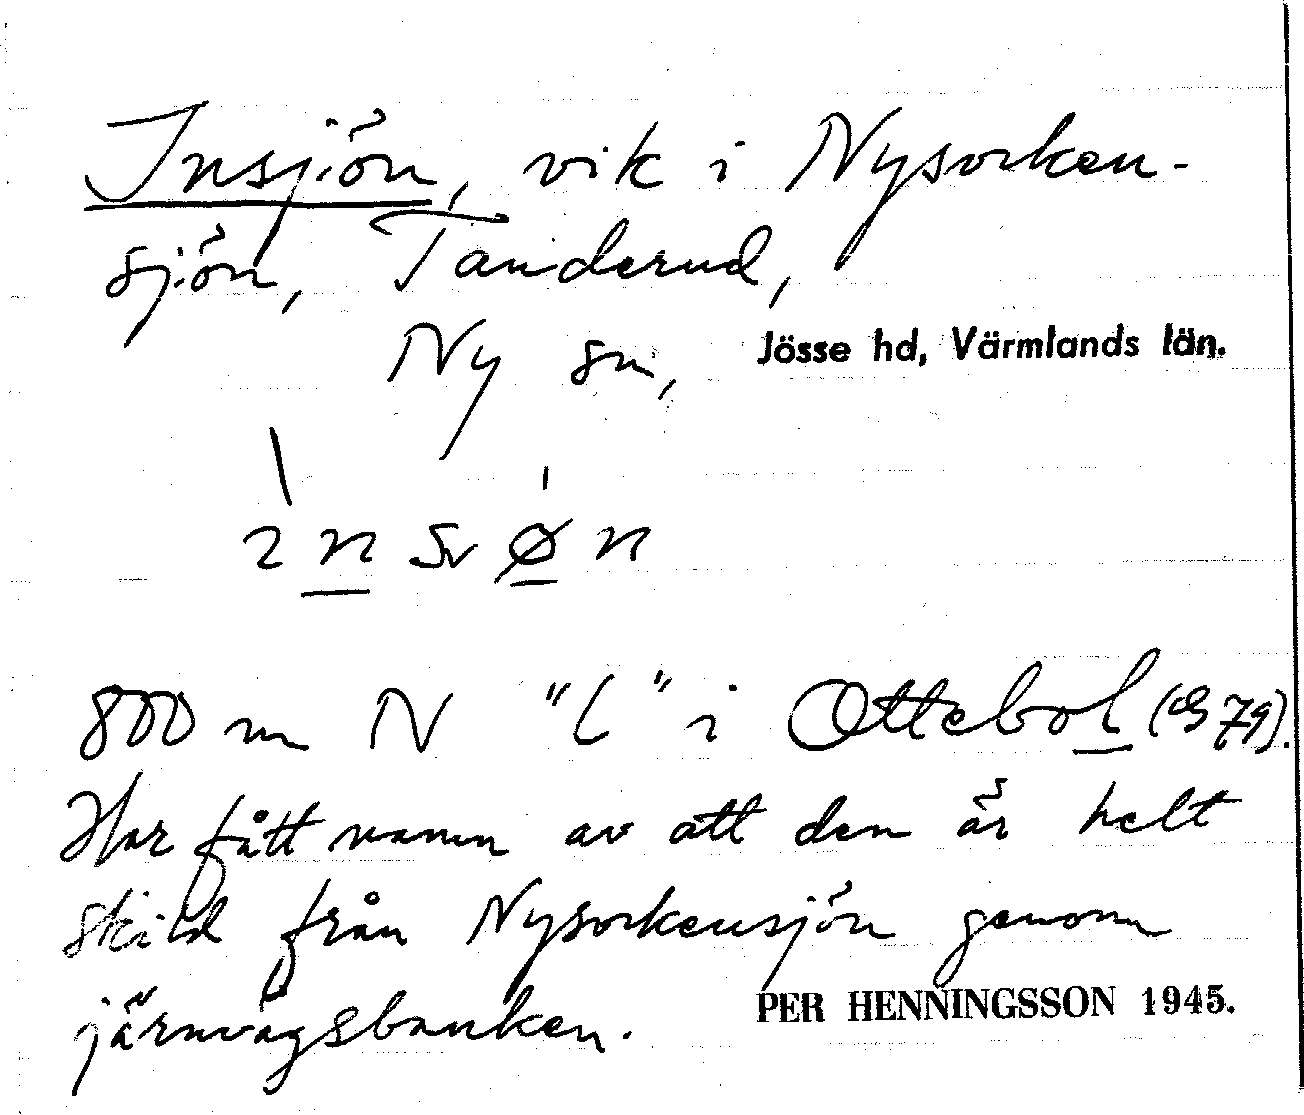 Insjön, vik i Nysocken-
sjön, Tanderud,
Ny sn, Jösse hd, Värmlands län.
800 m N "l" i Ottebol (G 79).
Har fått namn av att den är helt
skild från Nysockensjön genom
järnvägsbanken. PER HENNINGSSON 1945.